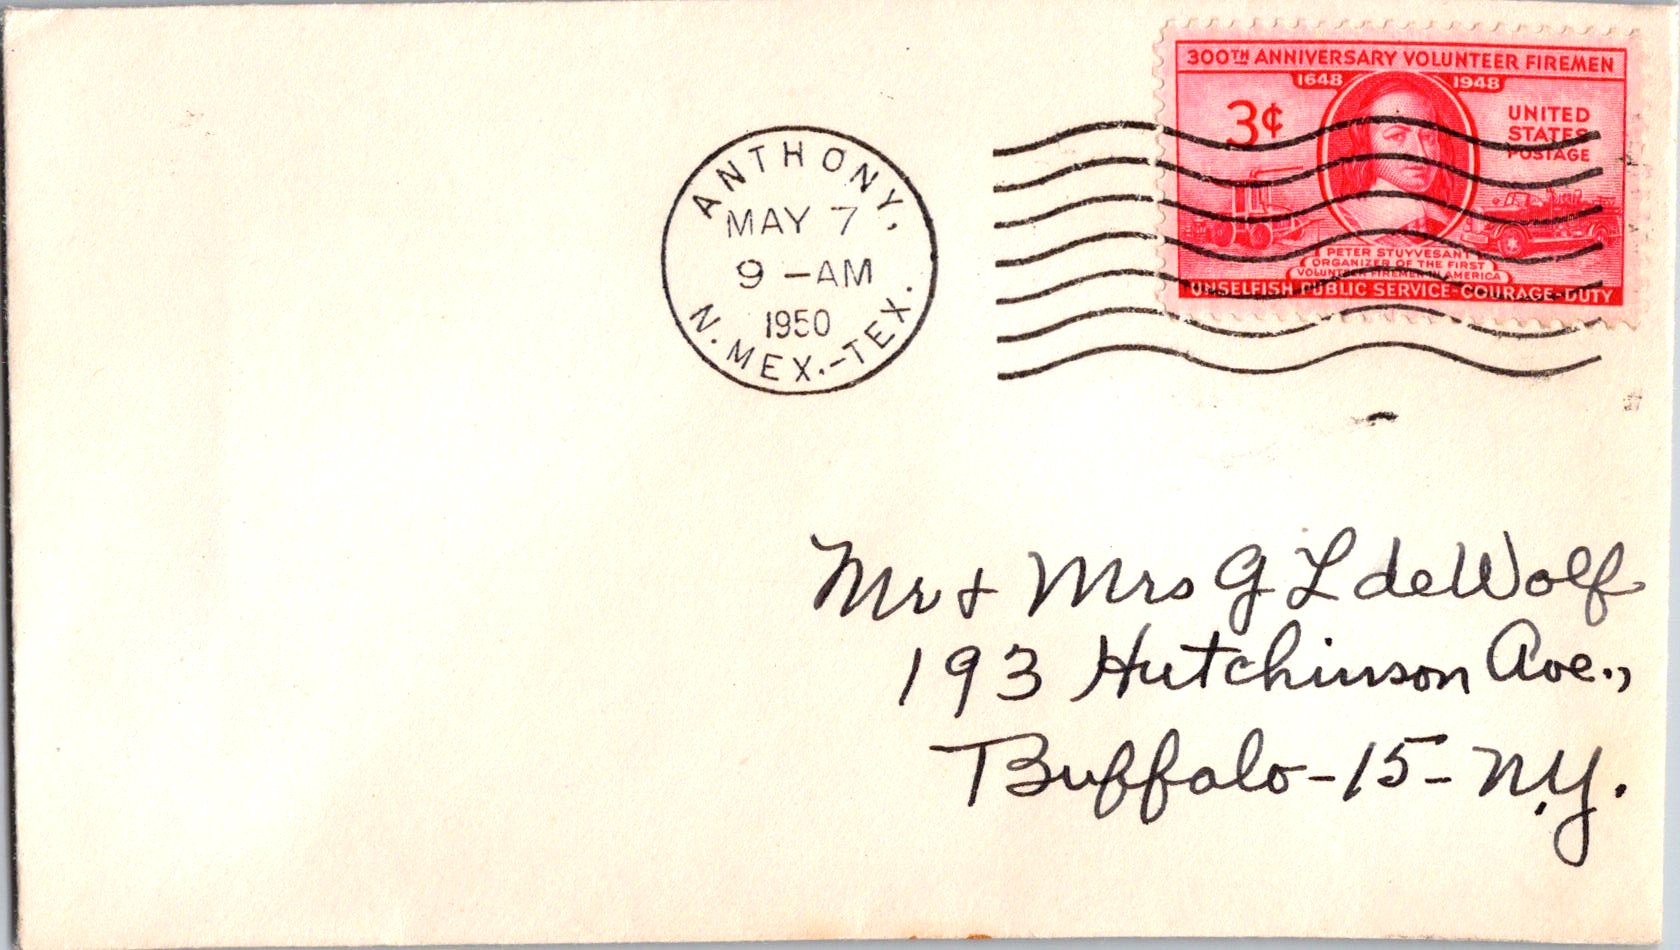 300TH ANNIVERSARY VOLUNTEER FIREMEN
1648 1948
3¢
UNITED
STATES
POSTAGE
PETER STUYVESANT
ORGANIZER OF THE FIRST
VOLUNTEER FIREMEN IN AMERICA
UNSELFISH PUBLIC SERVICE-COURAGE-DUTY
ANTHONY,
MAY 7
9-AM
1950
N. MEX.-TEX.
Mr + Mrs G L deWolf
193 Hutchinson Ave.,
Buffalo-15-N.Y.